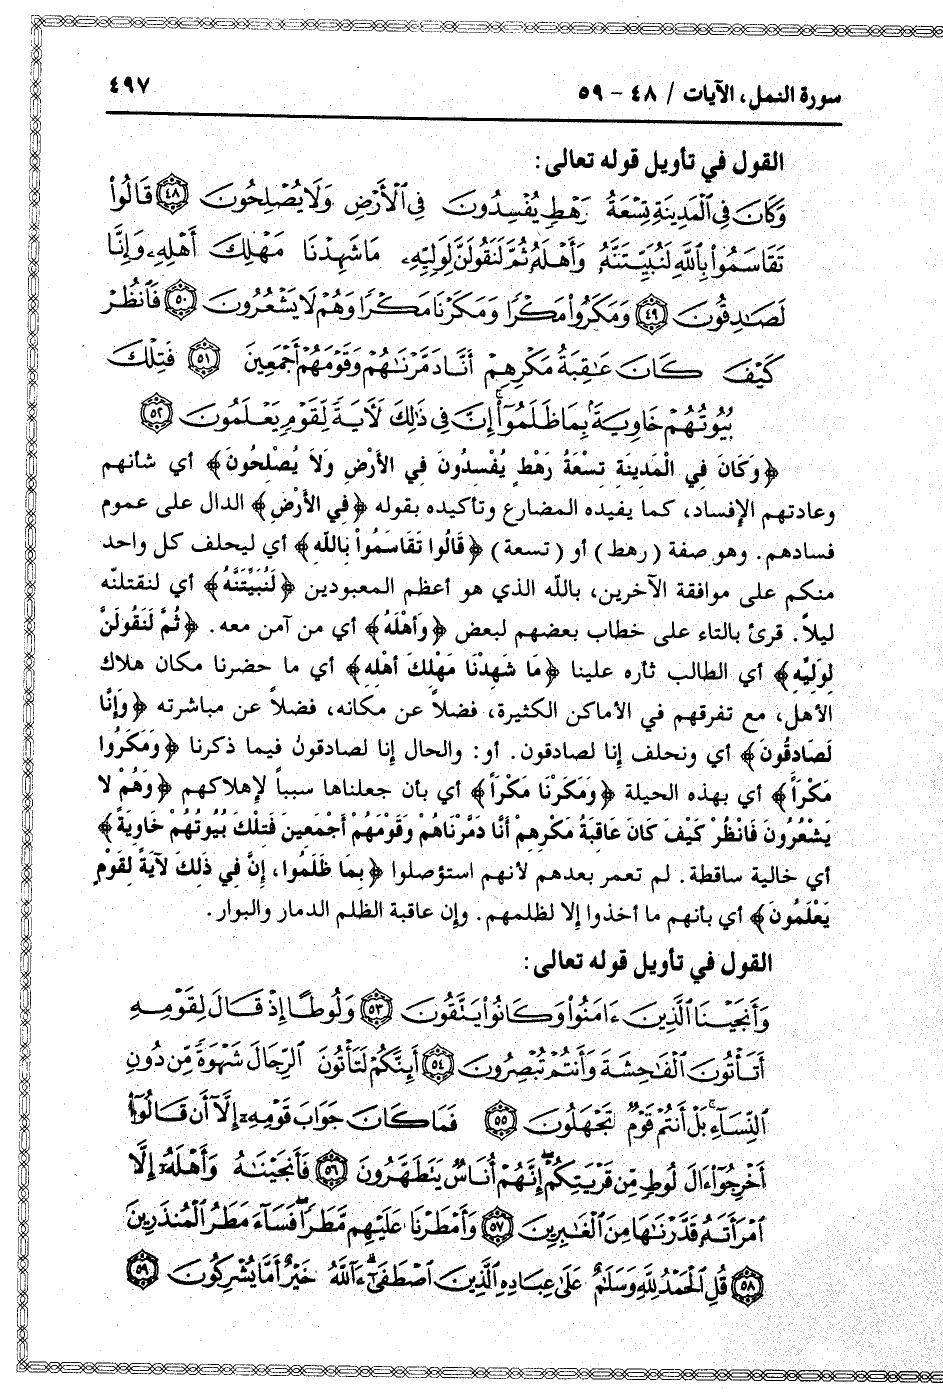 سورة النمل، الآيات / ٤٨ - ٥٩
٤٩٧
القول في تأويل قوله تعالى:
وَكَانَ فِي ٱلْمَدِينَةِ تِسْعَةُ رَهْطٍ يُفْسِدُونَ فِي ٱلْأَرْضِ وَلَا يُصْلِحُونَ ٤٨ قَالُوا۟
تَقَاسَمُوا۟ بِٱللَّهِ لَنُبَيِّتَنَّهُۥ وَأَهْلَهُۥ ثُمَّ لَنَقُولَنَّ لِوَلِيِّهِۦ مَا شَهِدْنَا مَهْلِكَ أَهْلِهِۦ وَإِنَّا
لَصَٰدِقُونَ ٤٩ وَمَكَرُوا۟ مَكْرًا وَمَكَرْنَا مَكْرًا وَهُمْ لَا يَشْعُرُونَ ٥٠ فَٱنظُرْ
كَيْفَ كَانَ عَٰقِبَةُ مَكْرِهِمْ أَنَّا دَمَّرْنَٰهُمْ وَقَوْمَهُمْ أَجْمَعِينَ ٥١ فَتِلْكَ
بُيُوتُهُمْ خَاوِيَةًۢ بِمَا ظَلَمُوٓا۟ ۗ إِنَّ فِي ذَٰلِكَ لَـَٔايَةً لِّقَوْمٍ يَعْلَمُونَ ٥٢
﴿وَكَانَ فِي الْمَدِينَةِ تِسْعَةُ رَهْطٍ يُفْسِدُونَ فِي الأَرْضِ وَلاَ يُصْلِحُونَ﴾ أي شأنهم
وعادتهم الإفساد، كما يفيده المضارع وتأكيده بقوله ﴿فِي الأَرْضِ﴾ الدال على عموم
فسادهم. وهو صفة (رهط) أو (تسعة) ﴿قَالُوا تَقَاسَمُوا بِاللَّهِ﴾ أي ليحلف كل واحد
منكم على موافقة الآخرين، بالله الذي هو أعظم المعبودين ﴿لَنُبَيِّتَنَّهُ﴾ أي لنقتلنّه
ليلاً. قرئ بالتاء على خطاب بعضهم لبعض ﴿وَأَهْلَهُ﴾ أي من آمن معه. ﴿ثُمَّ لَنَقُولَنَّ
لِوَلِيِّهِ﴾ أي الطالب ثأره علينا ﴿مَا شَهِدْنَا مَهْلِكَ أَهْلِهِ﴾ أي ما حضرنا مكان هلاك
الأهل، مع تفرقهم في الأماكن الكثيرة، فضلاً عن مكانه، فضلاً عن مباشرته ﴿وَإِنَّا
لَصَادِقُونَ﴾ أي ونحلف إنا لصادقون. أو: والحال إنا لصادقونُ فيما ذكرنا ﴿وَمَكَرُوا
مَكْراً﴾ أي بهذه الحيلة ﴿وَمَكَرْنَا مَكْراً﴾ أي بأن جعلناها سبباً لإهلاكهم ﴿وَهُمْ لا
يَشْعُرُونَ فَانْظُرْ كَيْفَ كَانَ عَاقِبَةُ مَكْرِهِمْ أَنَّا دَمَّرْنَاهُمْ وَقَوْمَهُمْ أَجْمَعِينَ فَتِلْكَ بُيُوتُهُمْ خَاوِيَةً﴾
أي خالية ساقطة. لم تعمر بعدهم لأنهم استؤصلوا ﴿بِمَا ظَلَمُوا، إِنَّ فِي ذَلِكَ لآيَةً لِقَوْمٍ
يَعْلَمُونَ﴾ أي بأنهم ما أخذوا إلا لظلمهم. وإن عاقبة الظلم الدمار والبوار.
القول في تأويل قوله تعالى:
وَأَنجَيْنَا ٱلَّذِينَ ءَامَنُوا۟ وَكَانُوا۟ يَتَّقُونَ ٥٣ وَلُوطًا إِذْ قَالَ لِقَوْمِهِۦٓ
أَتَأْتُونَ ٱلْفَٰحِشَةَ وَأَنتُمْ تُبْصِرُونَ ٥٤ أَئِنَّكُمْ لَتَأْتُونَ ٱلرِّجَالَ شَهْوَةً مِّن دُونِ
ٱلنِّسَآءِ ۚ بَلْ أَنتُمْ قَوْمٌ تَجْهَلُونَ ٥٥ فَمَا كَانَ جَوَابَ قَوْمِهِۦٓ إِلَّآ أَن قَالُوٓا۟
أَخْرِجُوٓا۟ ءَالَ لُوطٍ مِّن قَرْيَتِكُمْ ۖ إِنَّهُمْ أُنَاسٌ يَتَطَهَّرُونَ ٥٦ فَأَنجَيْنَٰهُ وَأَهْلَهُۥٓ إِلَّا
ٱمْرَأَتَهُۥ قَدَّرْنَٰهَا مِنَ ٱلْغَٰبِرِينَ ٥٧ وَأَمْطَرْنَا عَلَيْهِم مَّطَرًا ۖ فَسَآءَ مَطَرُ ٱلْمُنذَرِينَ
٥٨ قُلِ ٱلْحَمْدُ لِلَّهِ وَسَلَٰمٌ عَلَىٰ عِبَادِهِ ٱلَّذِينَ ٱصْطَفَىٰٓ ۗ ءَآللَّهُ خَيْرٌ أَمَّا يُشْرِكُونَ ٥٩